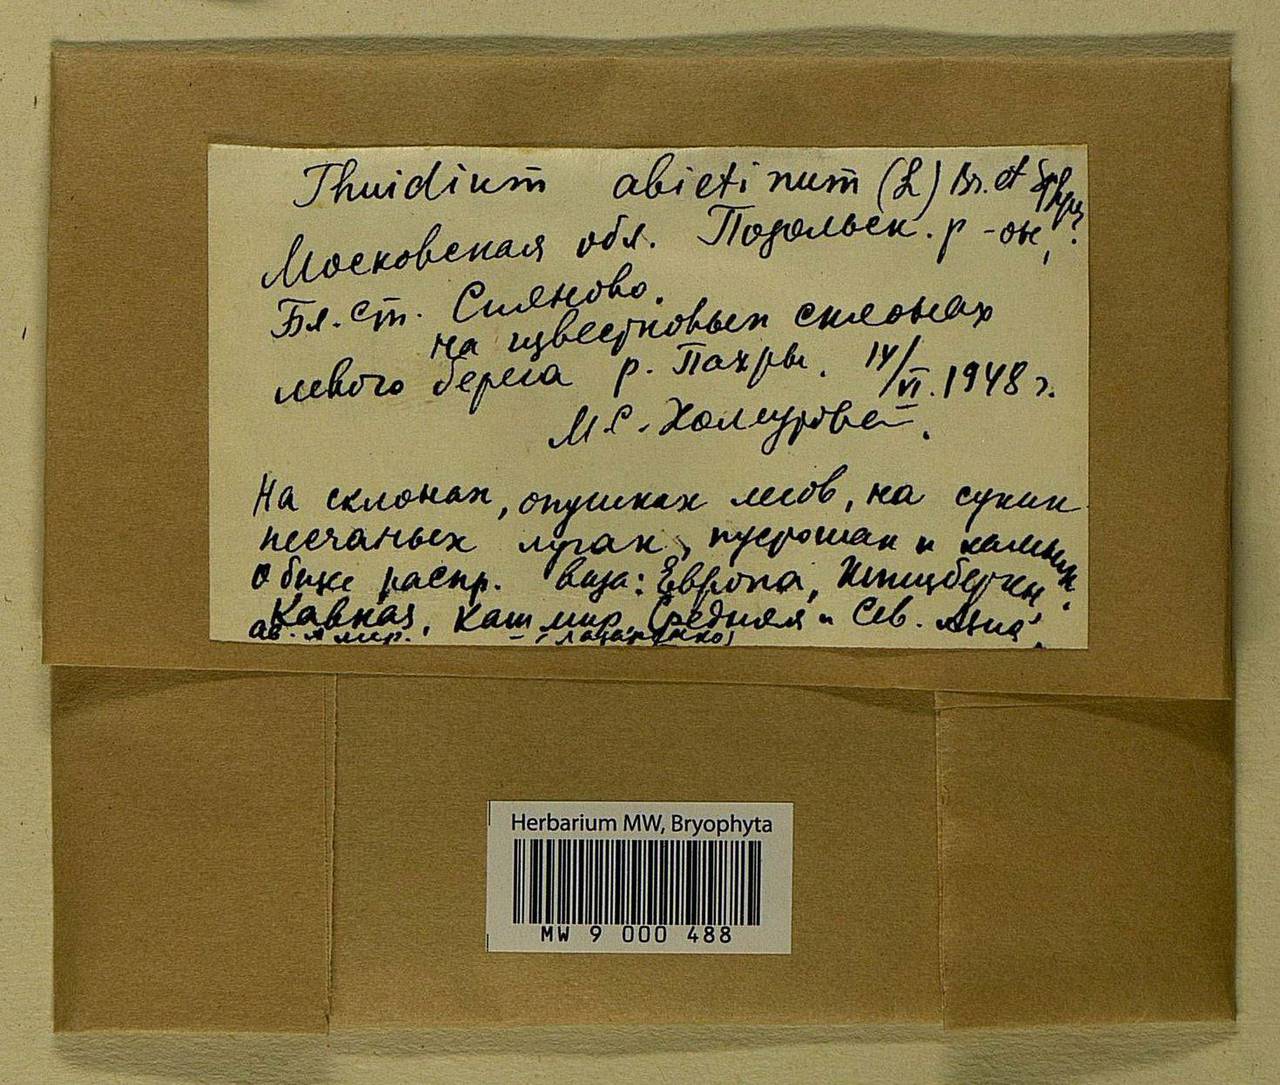 Thuidium abietinum (L) Br. et
Московская обл. Подольск. р-он,
Бл. ст. Сияново.
на известковых склонах
левого берега р. Пахры. 14/VI.1948 г.
М.С.
На склонах, опушках лесов, на сухих
песчаных лугах, пустошах и
Общее распр. вида: Европа, Шпицберген,
Кавказ, Кашмир, Средняя и Сев. Азия,
Herbarium MW, Bryophyta
MW 9 000 488